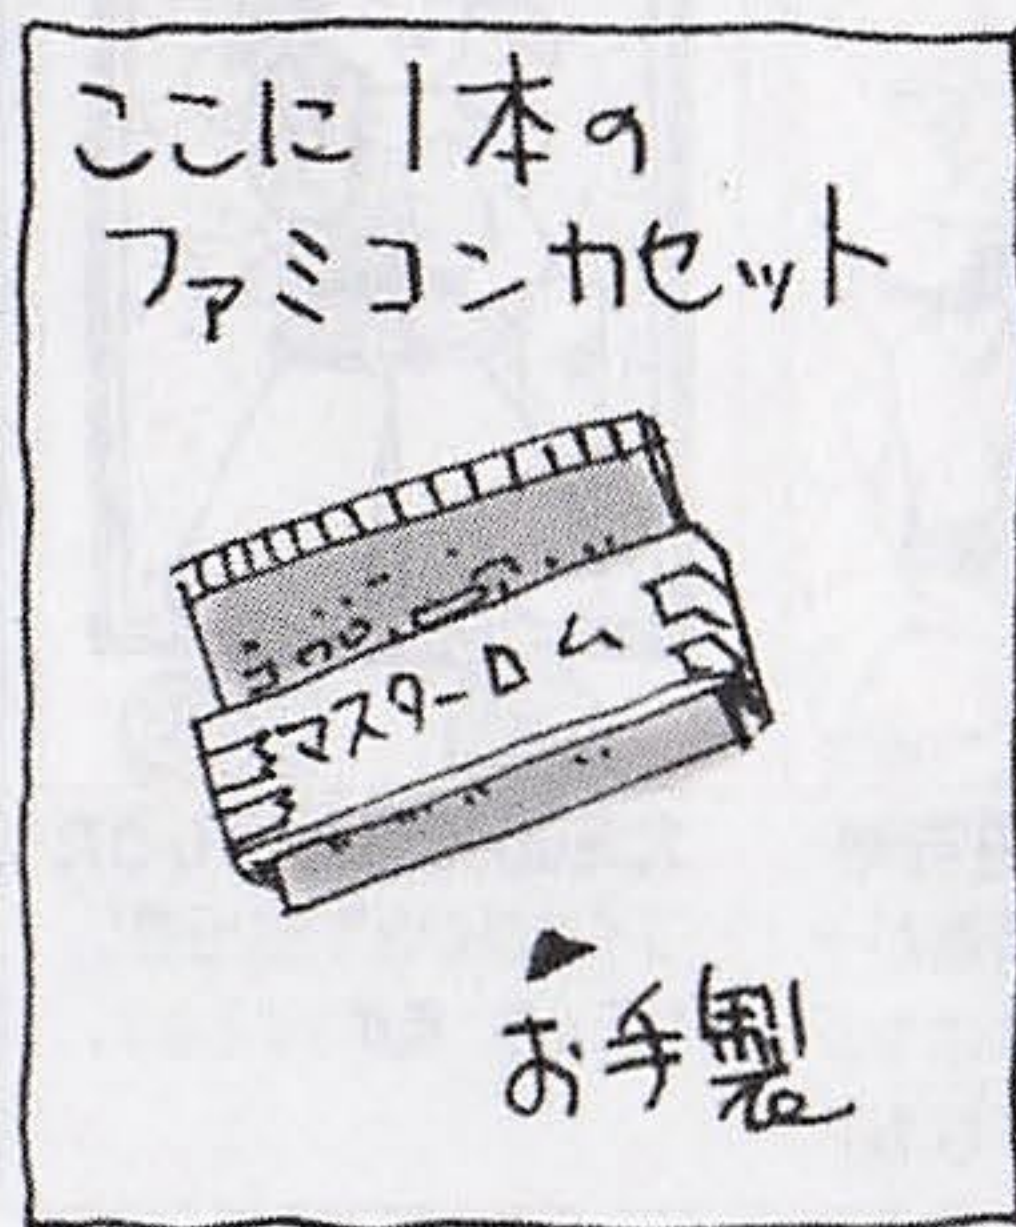 ここに1本の
ファミコンカセット
マスターロム
お手製